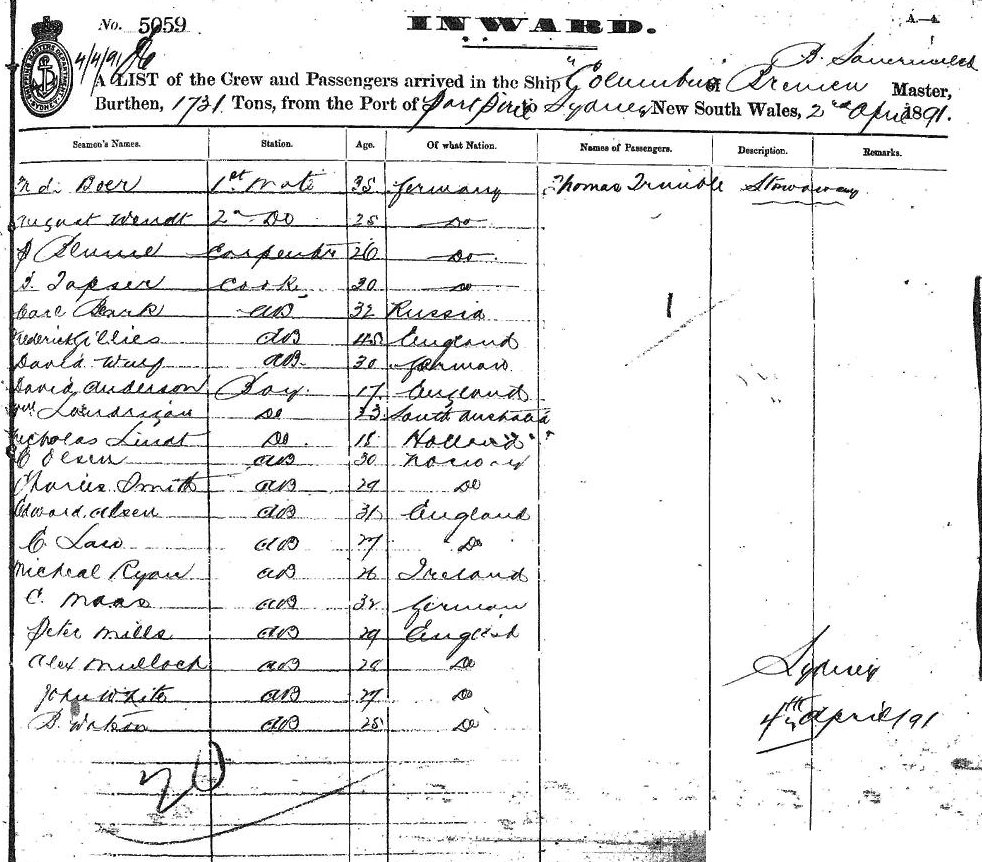 No. 5059 INWARD. A—4
4/4/91
A LIST of the Crew and Passengers arrived in the Ship "Columbus" of Bremen Master,
Burthen, 1731 Tons, from the Port of Port Pirie to Sydney New South Wales, 2nd April 1891.
Seamen's Names. Station. Age. Of what Nation. Names of Passengers. Description. Remarks.
Boer 1st Mate 35 Germany Thomas Trimble Stowaway
August Wendt 2nd Do 25 Do
Carpenter 26 Do
Tapser Cook 30 Do
Carl AB 32 Russia
Frederick Gillies AB 45 England
David Wulf AB 30 German
David Anderson Boy 17 England
Do 23 South Australia
Nicholas Lindt Do 18 Holland
C Olsen AB 30 Norway
Charles Smith AB 29 Do
Edward Olsen AB 31 England
C Law AB 27 Do
Micheal Ryan AB 26 Ireland
C. Maas AB 32 German
Peter Mills AB 29 English
Alex Mullock AB 28 Do
John White AB 27 Do
B. Watson AB 25 Do
Sydney
4th April /91
20